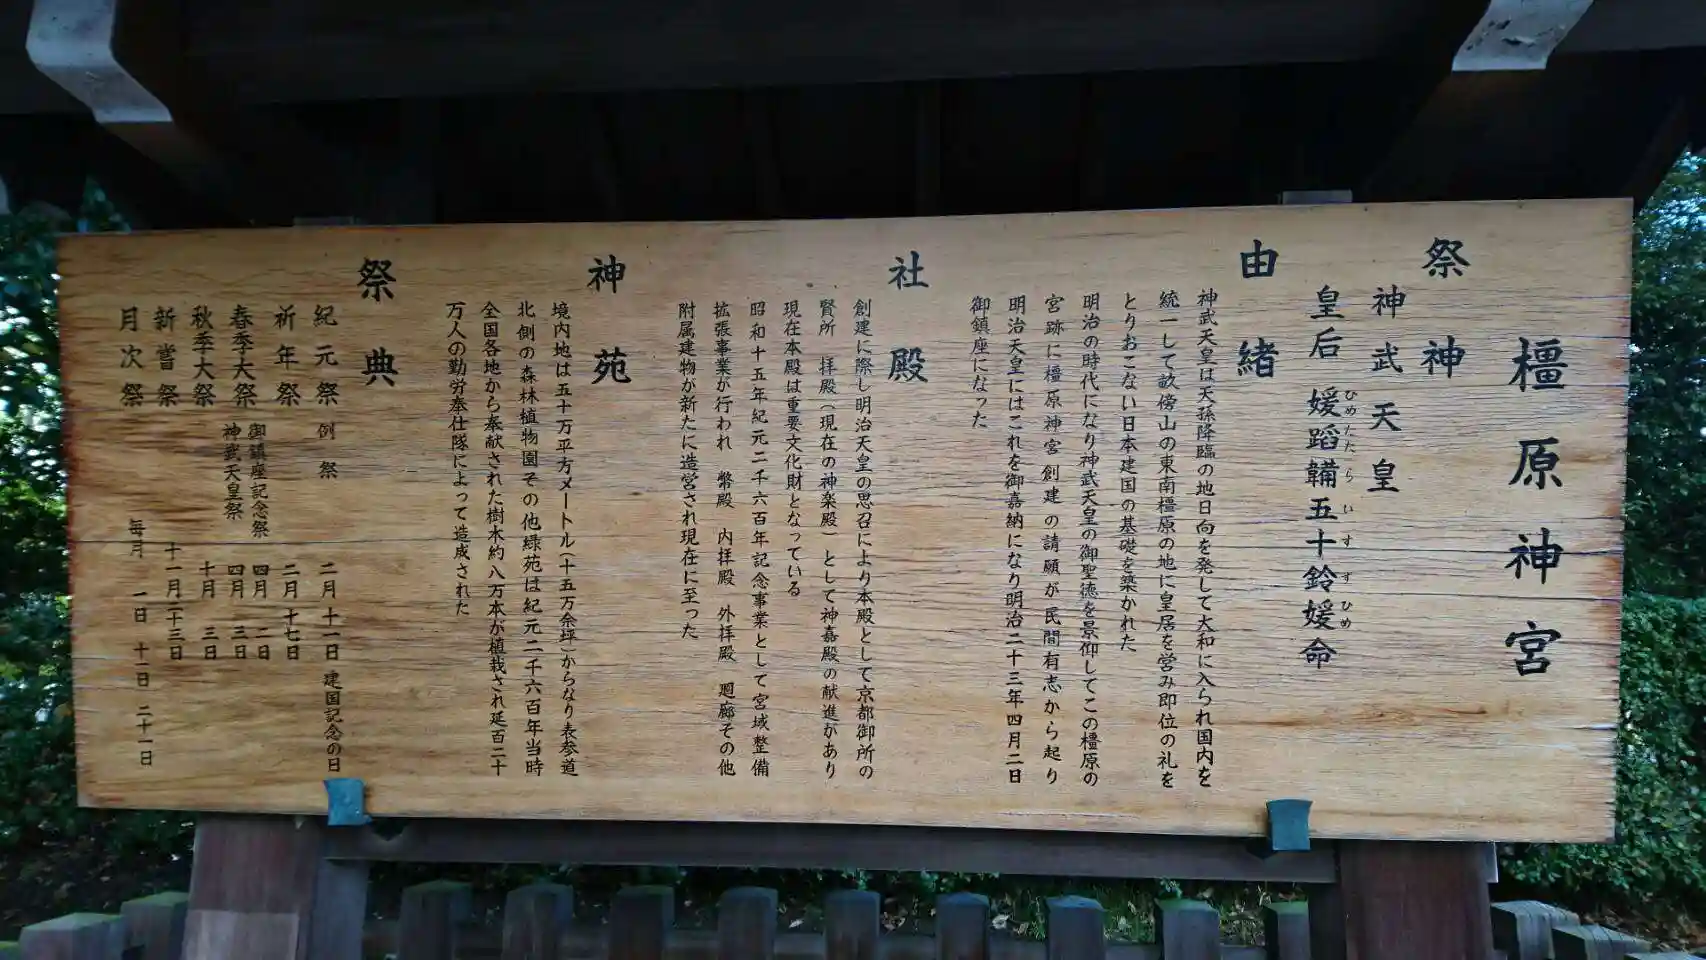 橿原神宮
祭神
神武天皇
皇后 媛蹈鞴五十鈴媛命
ひめたたらいすずひめ
由緒
神武天皇は天孫降臨の地日向を発して大和に入られ国内を
統一して畝傍山の東南橿原の地に皇居を営み即位の礼を
とりおこない日本建国の基礎を築かれた
明治の時代になり神武天皇の御聖徳を景仰してこの橿原の
宮跡に橿原神宮創建の請願が民間有志から起り
明治天皇にはこれを御嘉納になり明治二十三年四月二日
御鎮座になった
社殿
創建に際し明治天皇の思召により本殿として京都御所の
賢所 拝殿(現在の神楽殿)として神嘉殿の献進があり
現在本殿は重要文化財となっている
昭和十五年紀元二千六百年記念事業として宮域整備
拡張事業が行われ 幣殿 内拝殿 外拝殿 廻廊その他
附属建物が新たに造営され現在に至った
神苑
境内地は五十万平方メートル(十五万余坪)からなり表参道
北側の森林植物園その他緑苑は紀元二千六百年当時
全国各地から奉献された樹木約八万本が植栽され延百二十
万人の勤労奉仕隊によって造成された
祭典
紀元祭 例祭 二月十一日 建国記念の日
祈年祭 二月十七日
春季大祭 御鎮座記念祭 四月二日
神武天皇祭 四月三日
秋季大祭 十月三日
新嘗祭 十一月二十三日
月次祭 毎月 一日 十一日 二十一日